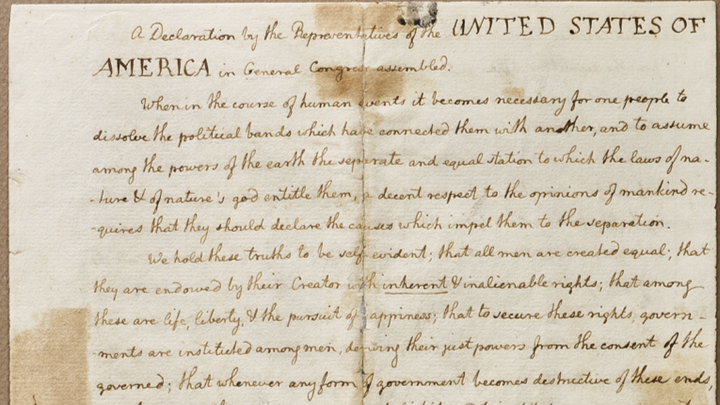 A Declaration by the Representatives of the UNITED STATES OF
AMERICA in General Congress assembled.
When in the course of human events it becomes necessary for one people to
dissolve the political bands which have connected them with another, and to assume
among the powers of the earth the separate and equal station to which the laws of na-
-ture & of nature's god entitle them, a decent respect to the opinions of mankind re-
-quires that they should declare the causes which impel them to the separation.
We hold these truths to be self evident; that all men are created equal; that
they are endowed by their Creator with inherent & inalienable rights; that among
these are life, liberty, & the pursuit of happiness; that to secure these rights, govern-
-ments are instituted among men, deriving their just powers from the consent of the
governed; that whenever any form of government becomes destructive of these ends,